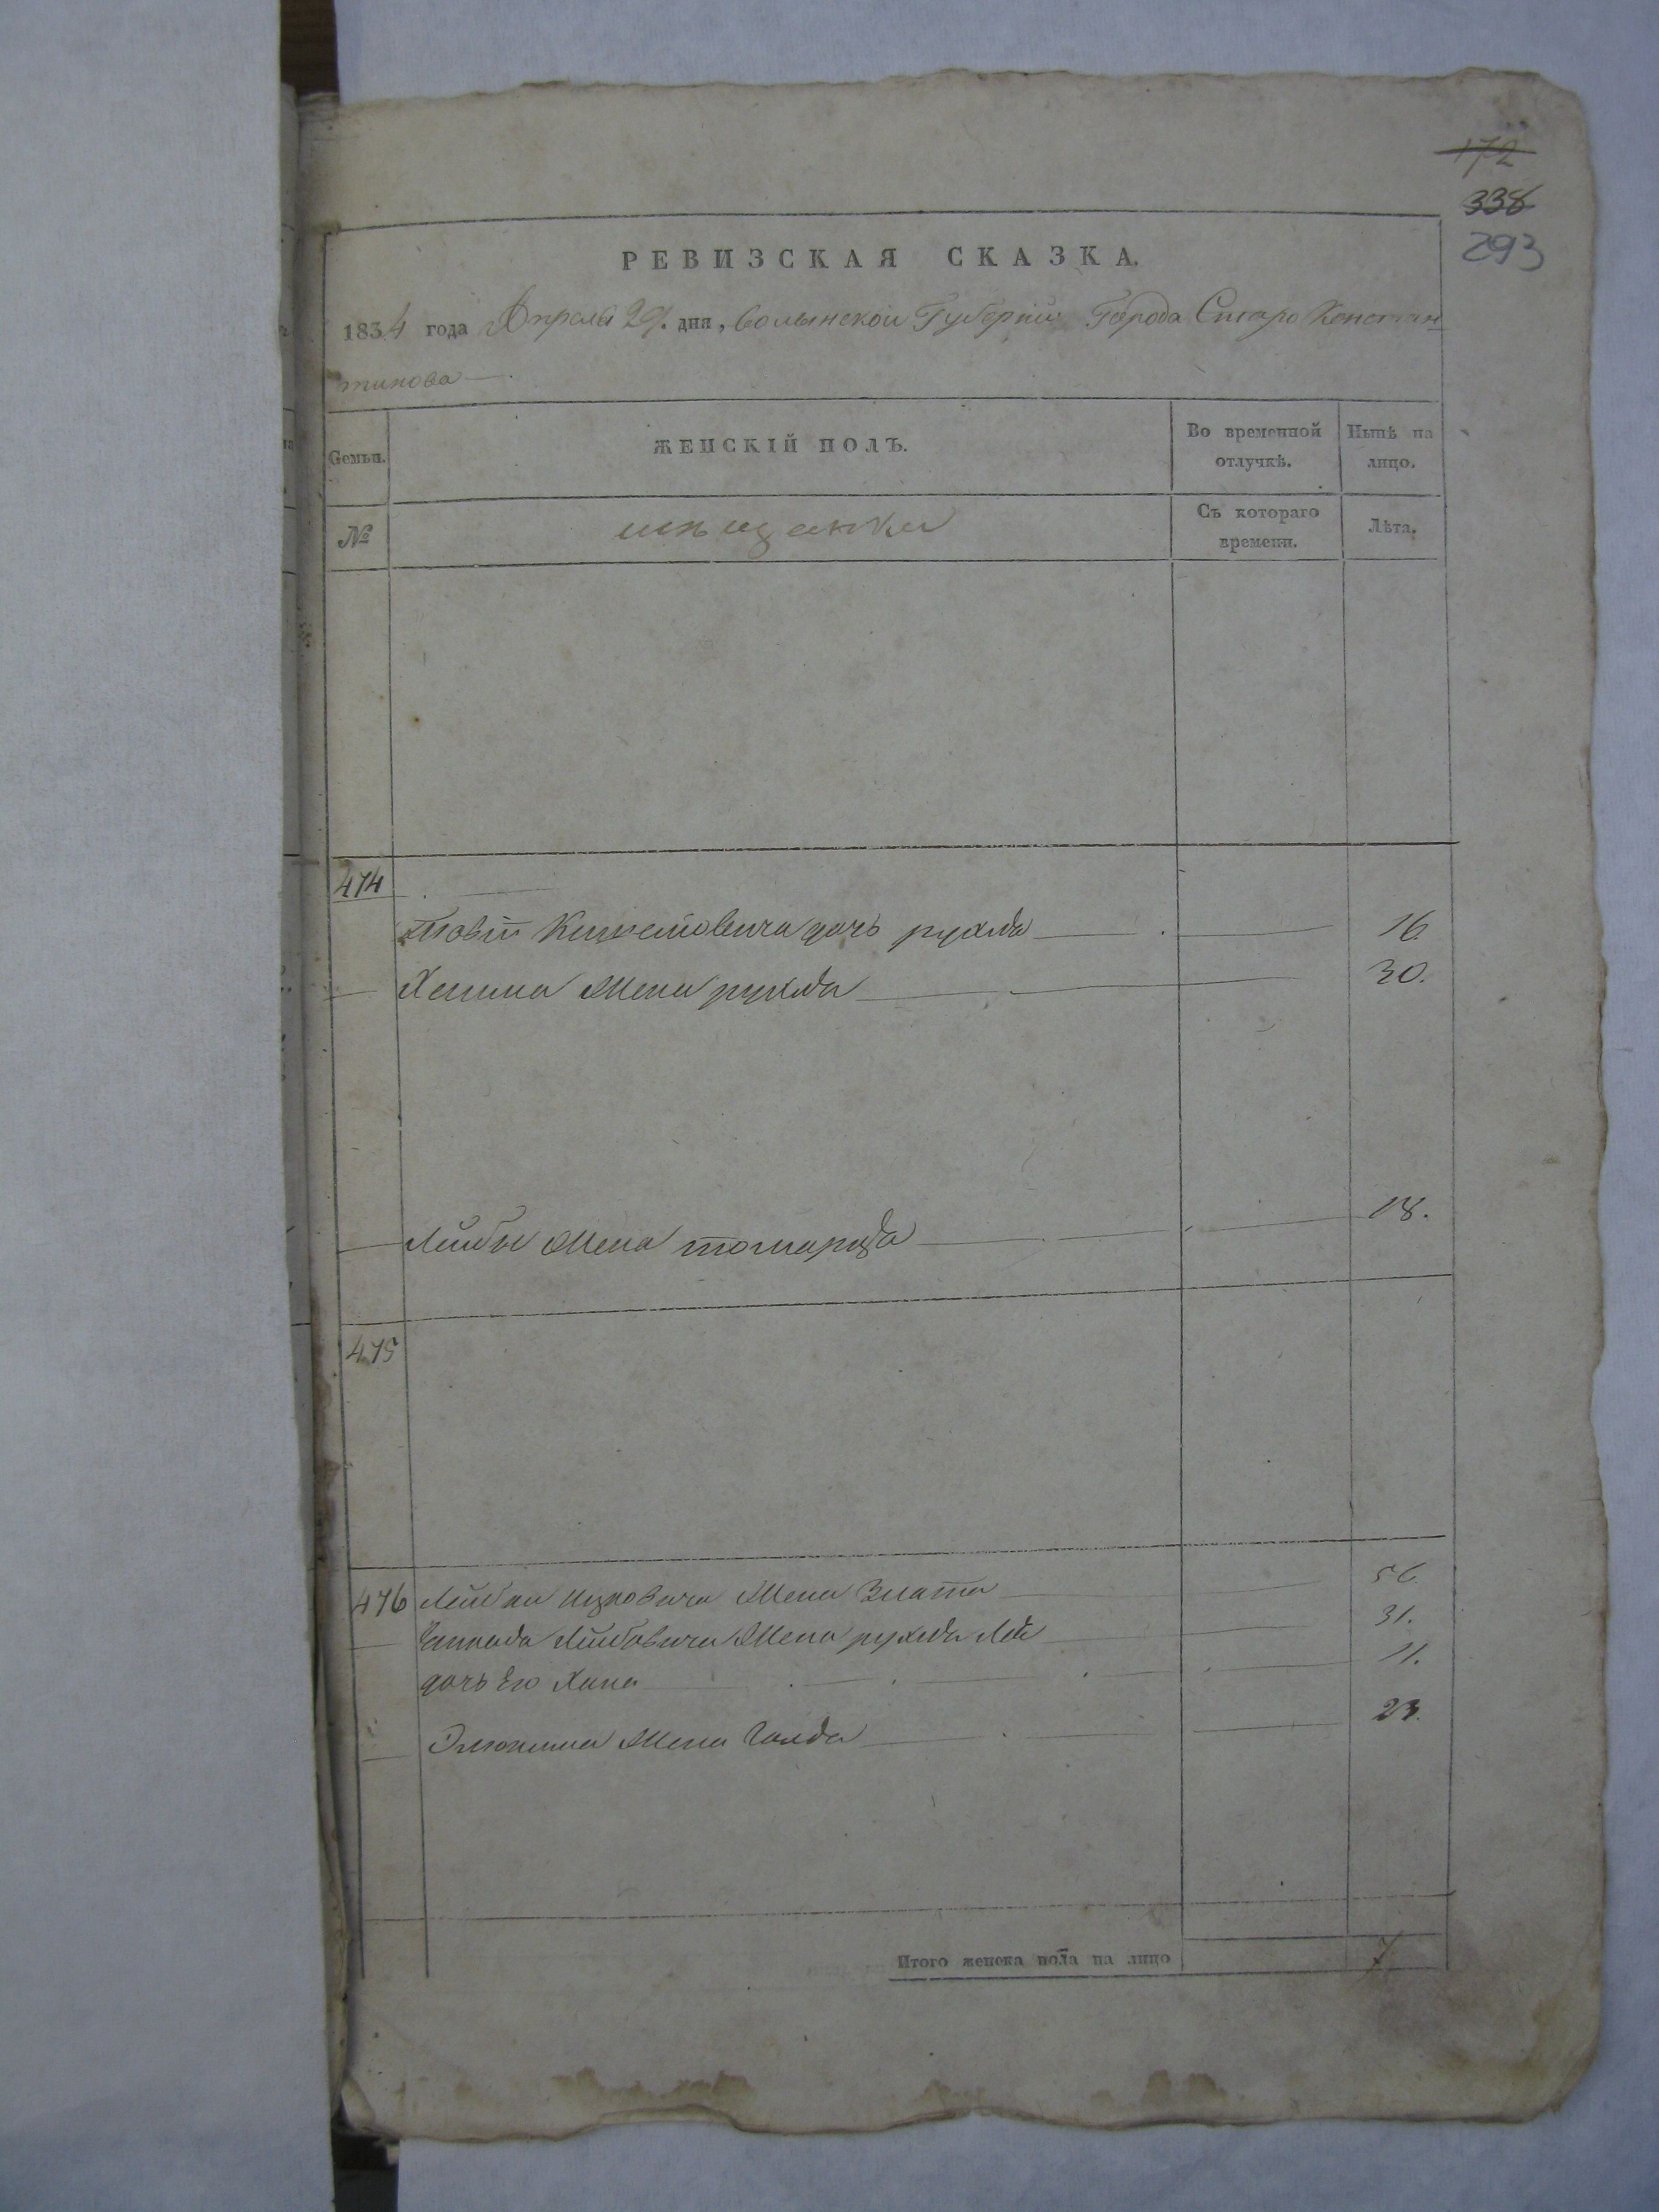 172
338
293
РЕВИЗСКАЯ СКАЗКА.
1834 года Апреля 29. дня, Волынской Губернии Города Старо Констан
тинова
Семьи. ЖЕНСКІЙ ПОЛЪ. Во временной отлучкѣ. Нынѣ на лицо.
№ мѣщанки Съ котораго времени. Лѣта.
474
дочь рухля 16
жена рухля 30.
Лейбы жена 18.
475
476 Лейбы Ицковича жена Злата 56
Лейбовича жена рухля Лея 31.
дочь Его Хана 11.
жена Голда 23.
Итого женска пола на лицо 7